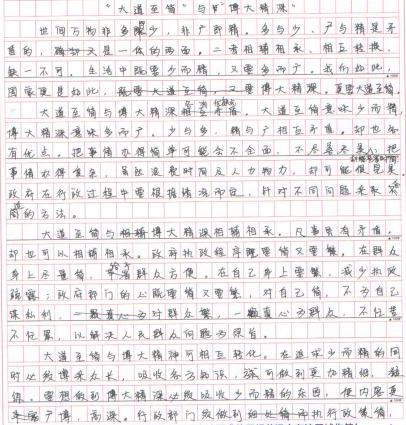 “大道至简”与“博大精深”
世间万物非多即少，非广即精。多与少、广与精是矛
盾的，又是一体的两面。二者相辅相承、相互转换，
缺一不可。生活中既要少而精，又要多而广。我们如此，
国家更是如此，既要大道至简，又要博大精深。
大道至简与博大精深相互矛盾。大道至简意味少而精，
博大精深意味多而广。少与多，精与广相互矛盾。却也各
有优点。把事情办得简单可能会不全面，不尽善尽美，把
事情办得复杂，虽然浪费时间及人力物力，却可能
政府在行政过程中要根据情况而定，针对不同问题采取
的方法。
大道至简与博大精深相辅相承。凡事虽有矛盾，
却也可以相辅相承。政府执政程序既要简又要繁，在群众
身上尽量简，群众方便。在自己身上要繁，减少执政
疏露；政府部门的心既要简又要繁，对自己简，不为自己
谋私利，对群众繁，一心为群众，不任
不任累，以解决人民群众问题为深旨。
大道至简与博大精神可相互转化。在追求少而精的同
时必须博采众长，吸收各方知识，深可做到更加精细、独
体。要想做到博大精深必须吸收少而精的东西，使内容更
广博、高深。行政部门须做到细处简而执行政策简，